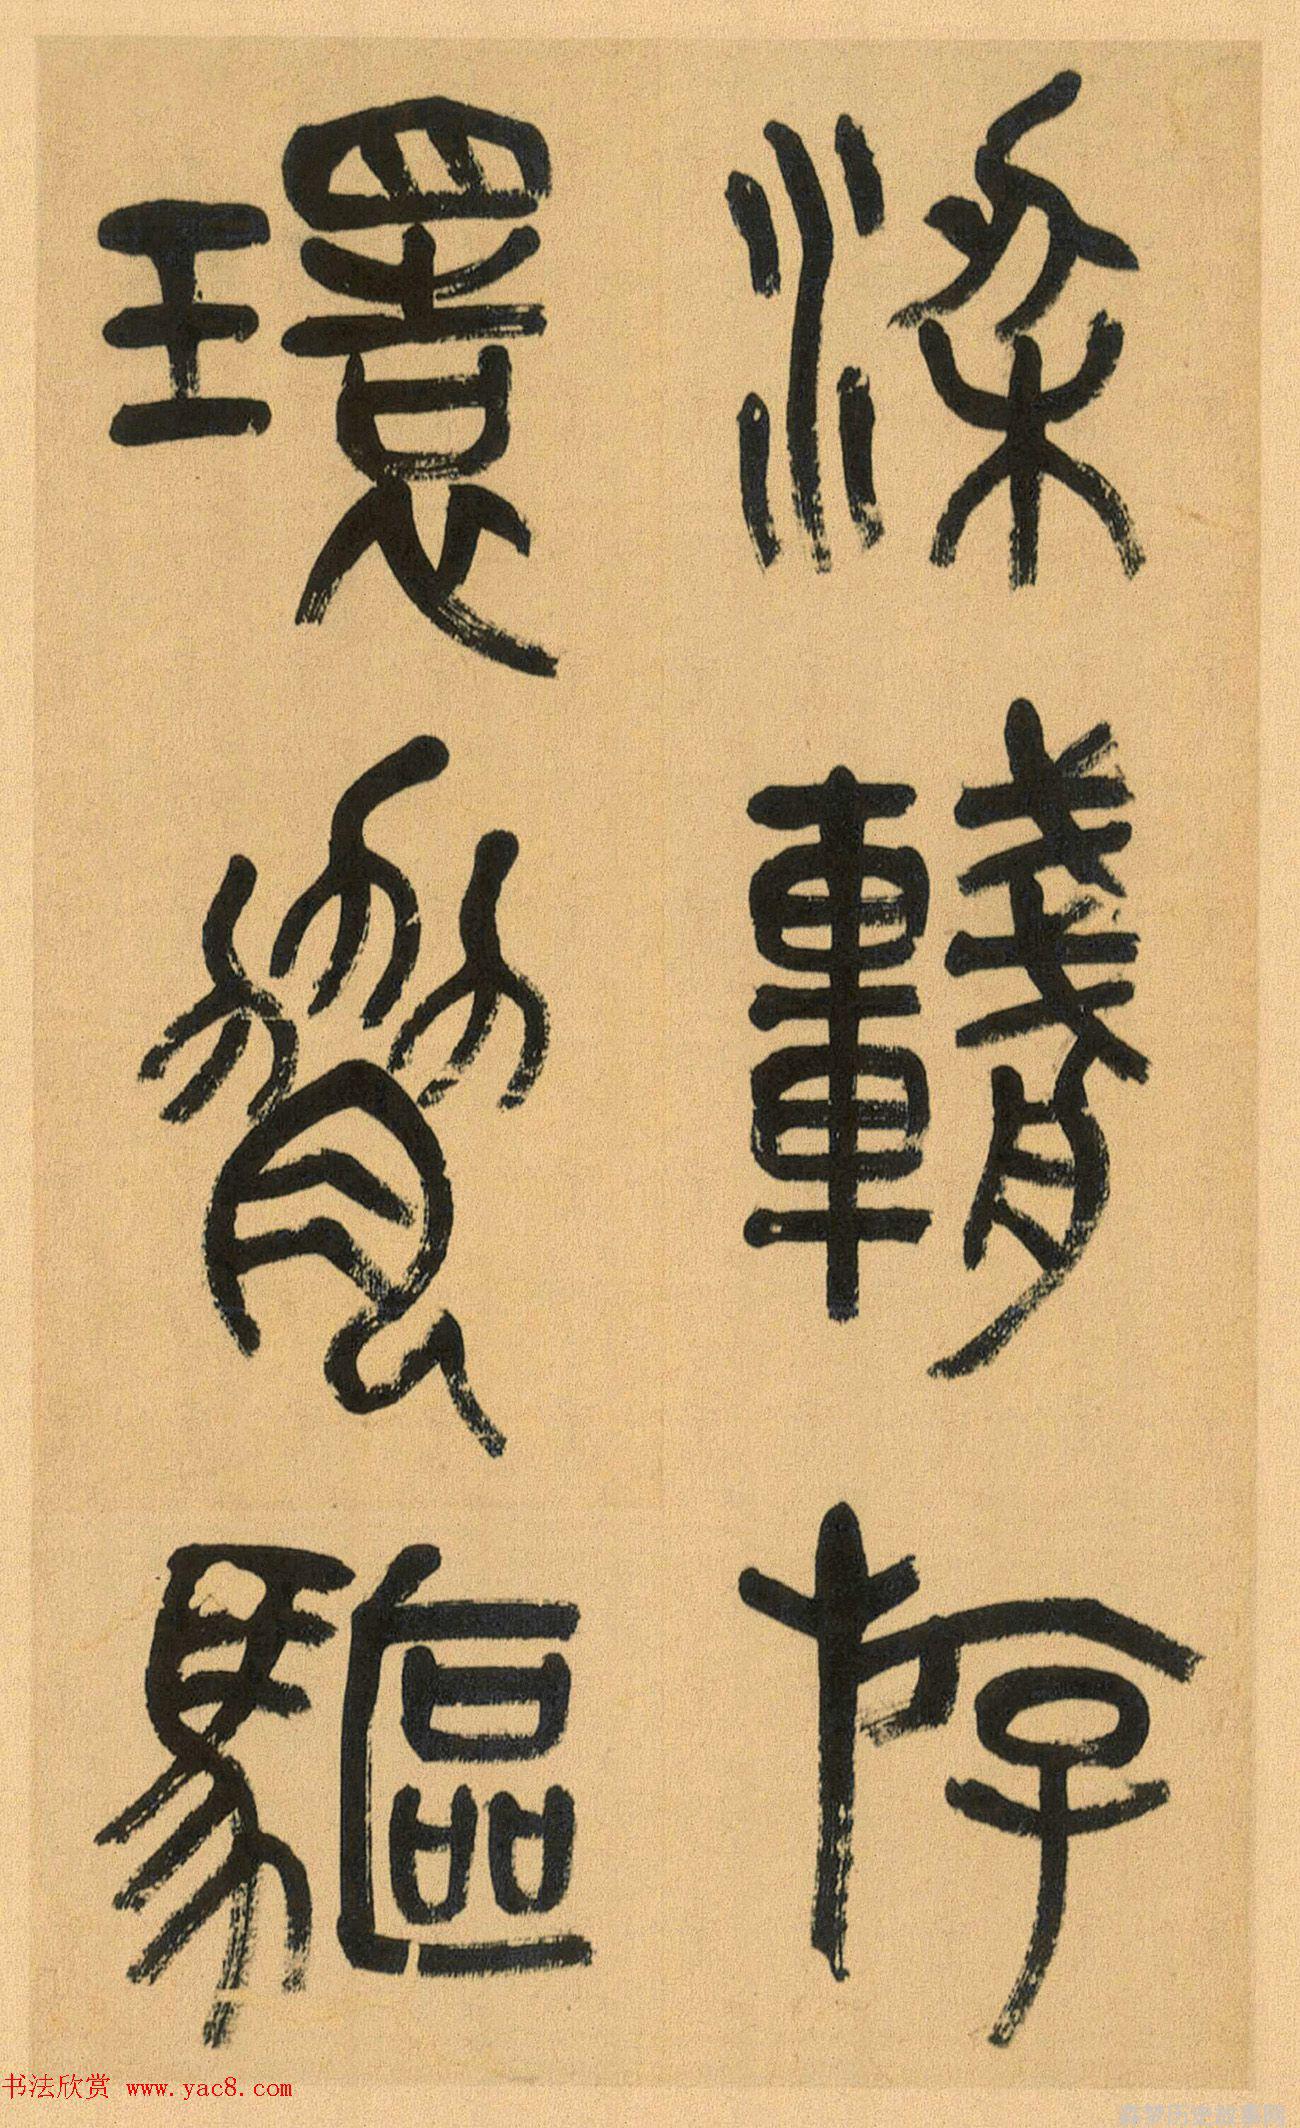 梁輈游
環脅驅
书法欣赏 www.yac8.com